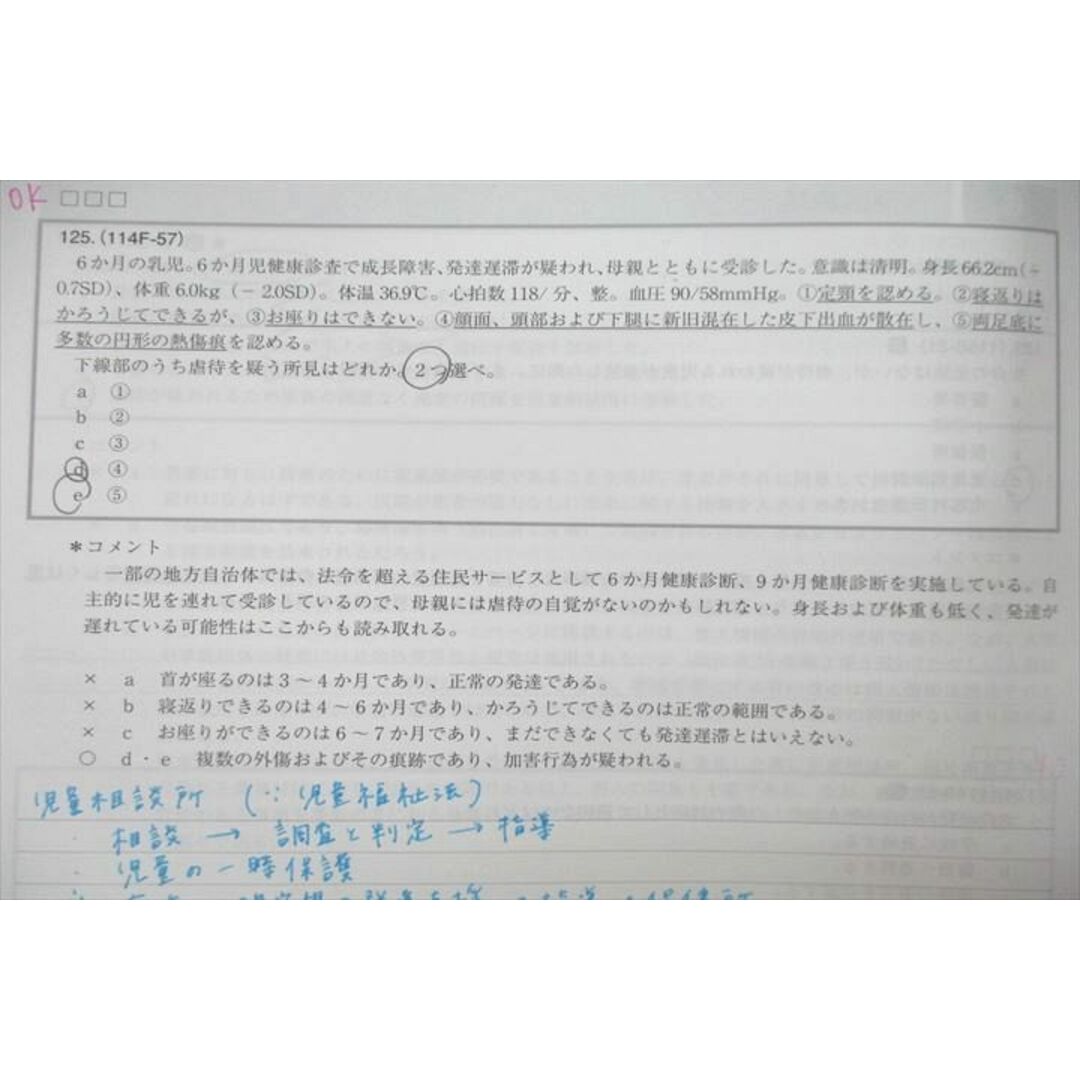 OK □□□
125.(114F-57)
6か月の乳児。6か月児健康診査で成長障害、発達遅滞が疑われ、母親とともに受診した。意識は清明。身長66.2cm(−
0.7SD)、体重6.0kg(−2.0SD)。体温36.9℃。心拍数118/分、整。血圧90/58mmHg。①定頸を認める。②寝返りは
かろうじてできるが、③お座りはできない。④顔面、頭部および下腿に新旧混在した皮下出血が散在し、⑤両足底に
多数の円形の熱傷痕を認める。
下線部のうち虐待を疑う所見はどれか。2つ選べ。
a ①
b ②
c ③
d ④
e ⑤
＊コメント
一部の地方自治体では、法令を超える住民サービスとして6か月健康診断、9か月健康診断を実施している。自
主的に児を連れて受診しているので、母親には虐待の自覚がないのかもしれない。身長および体重も低く、発達が
遅れている可能性はここからも読み取れる。
× a 首が座るのは3～4か月であり、正常の発達である。
× b 寝返りできるのは4～6か月であり、かろうじてできるのは正常の範囲である。
× c お座りができるのは6～7か月であり、まだできなくても発達遅滞とはいえない。
○ d・e 複数の外傷およびその痕跡であり、加害行為が疑われる。
児童相談所 (∵児童福祉法)
相談 → 調査と判定 → 指導
・児童の一時保護